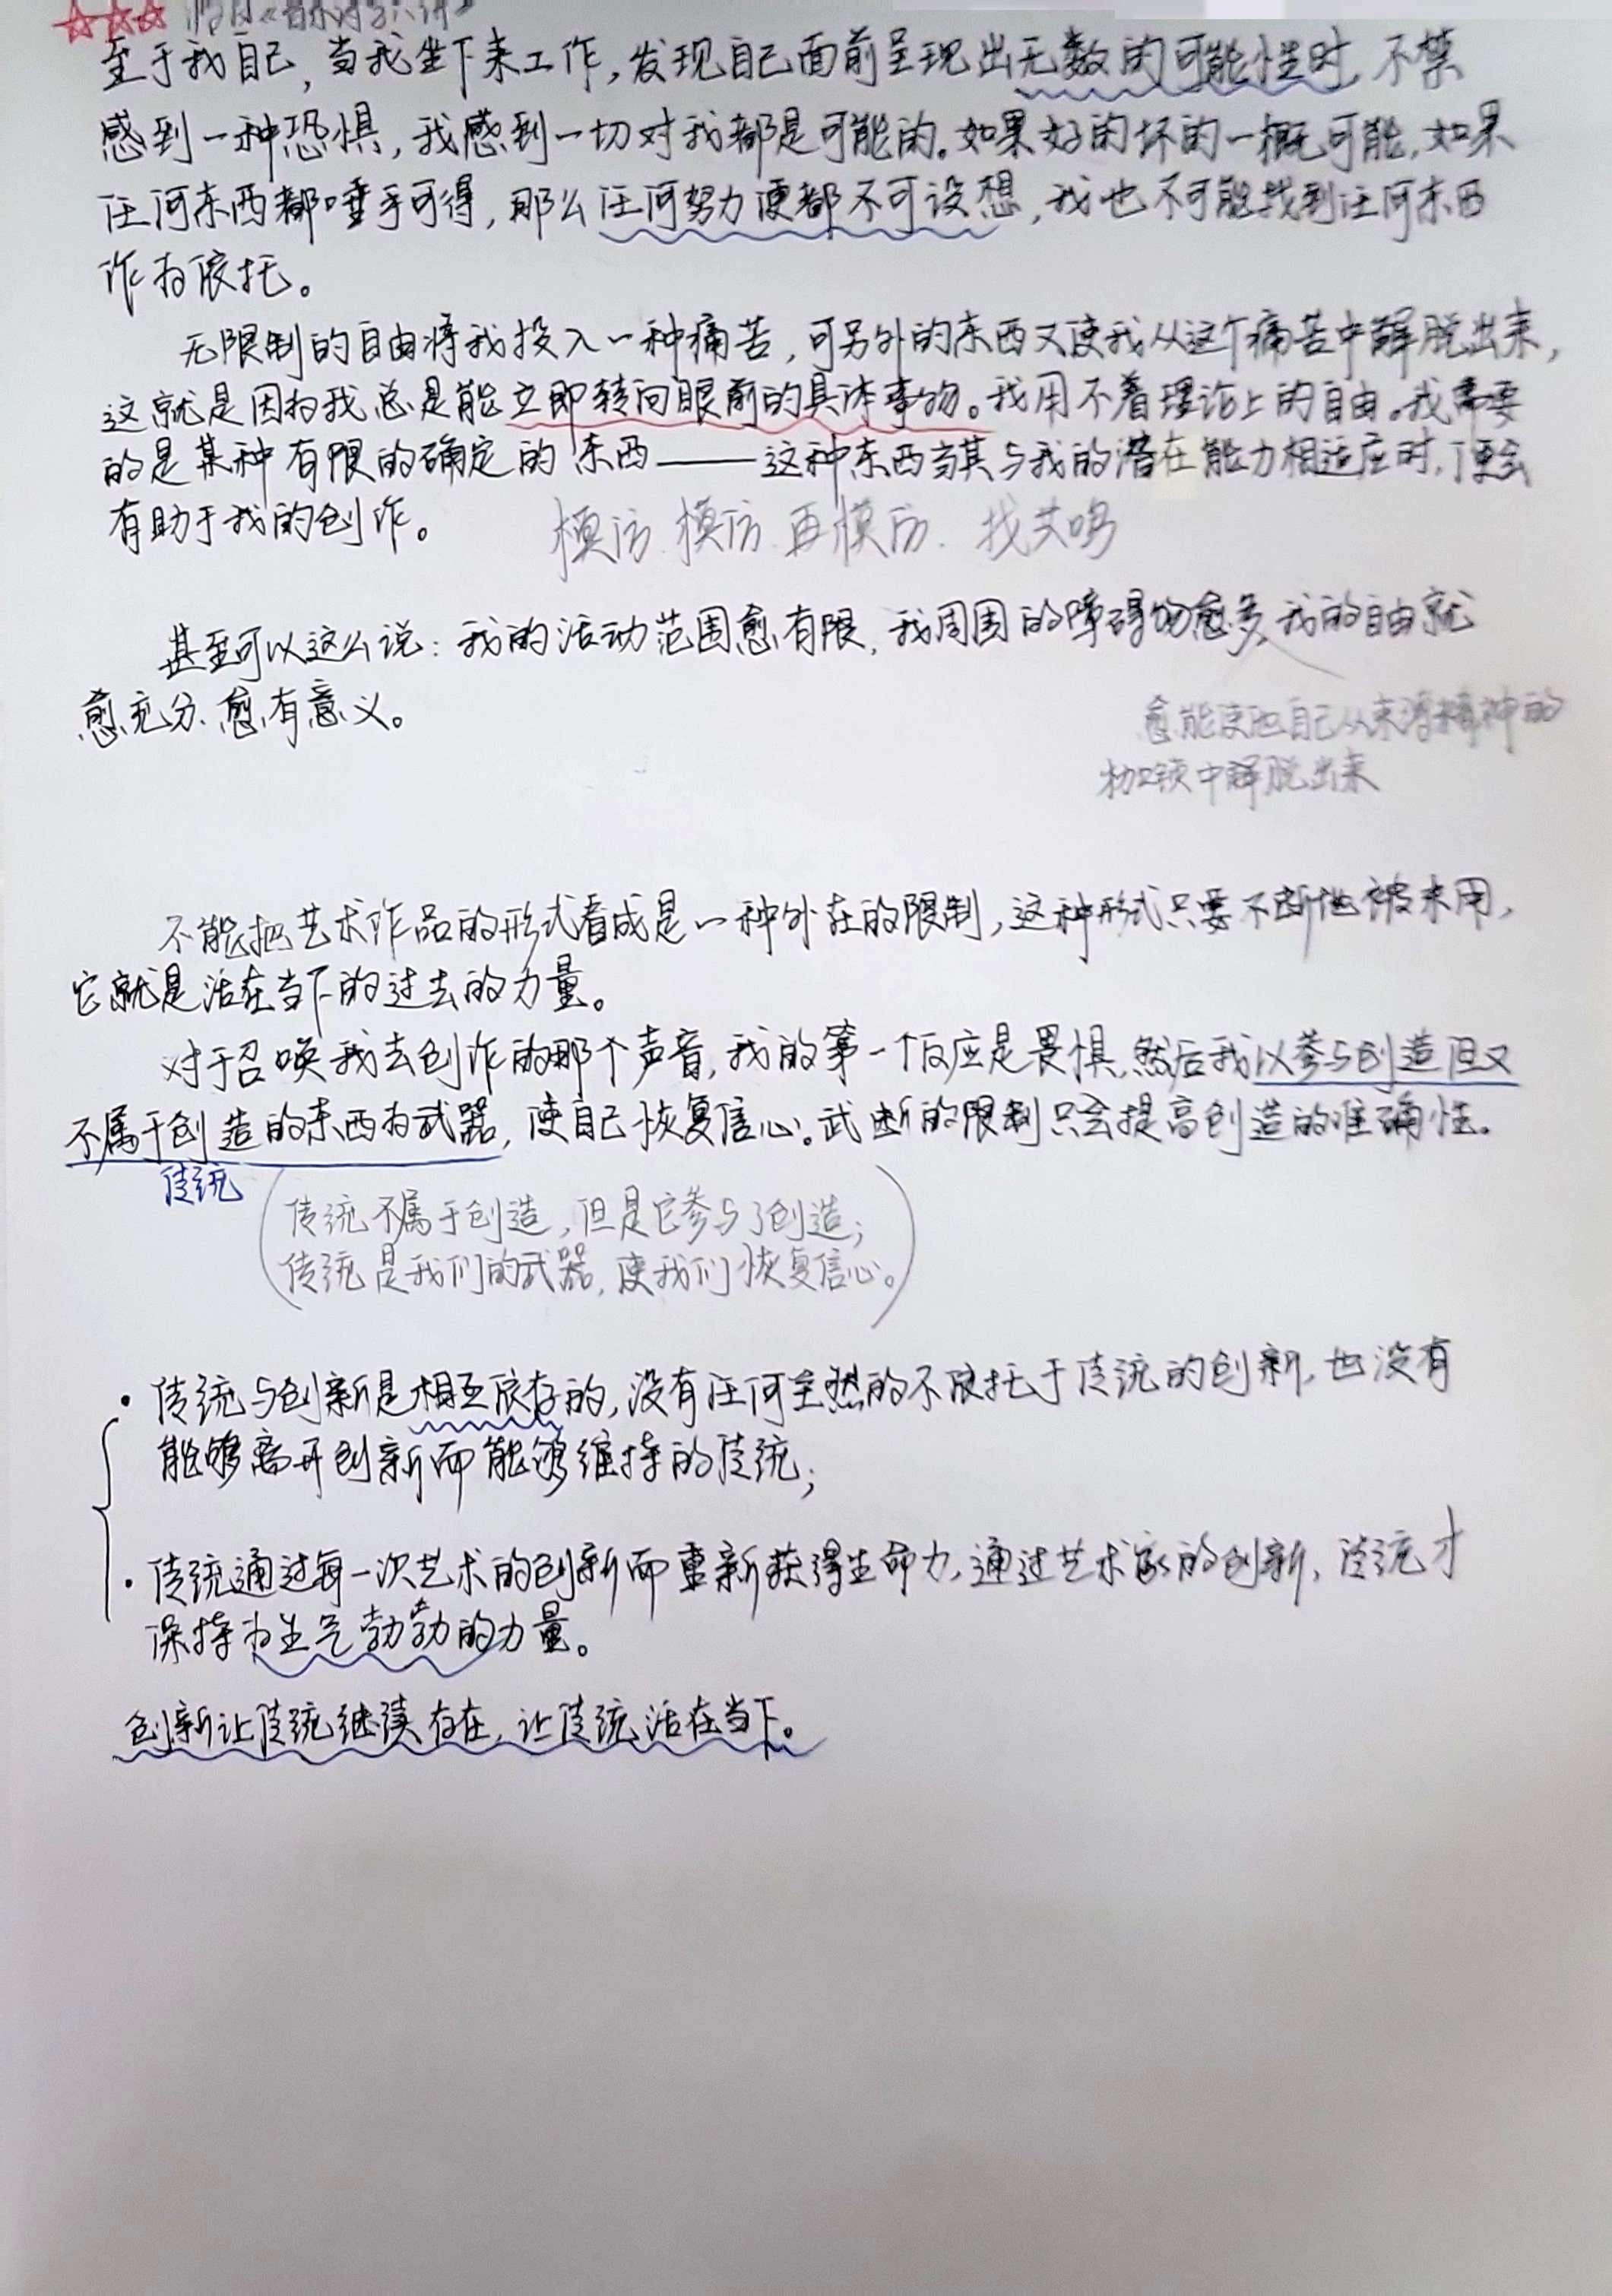 至于我自己，当我坐下来工作，发现自己面前呈现出无数的可能性时，不禁
感到一种恐惧，我感到一切对我都是可能的。如果好的坏的一概可能，如果
任何东西都唾手可得，那么任何努力便都不可设想，我也不可能找到任何东西
作为依托。
无限制的自由将我投入一种痛苦，可另外的东西又使我从这个痛苦中解脱出来，
这就是因为我总是能立即转向眼前的具体事物。我用不着理论上的自由。我需要
的是某种有限的确定的东西——这种东西当其与我的潜在能力相适应时，便会
有助于我的创作。
模仿、模仿、再模仿、找共鸣
甚至可以这么说：我的活动范围愈有限，我周围的障碍物愈多，我的自由就
愈充分、愈有意义。
愈能使他自己从束缚精神的
枷锁中解脱出来
不能把艺术作品的形式看成是一种外在的限制，这种形式只要不断地被采用，
它就是活在当下的过去的力量。
对于召唤我去创作的那个声音，我的第一个反应是畏惧，然后我以参与创造但又
不属于创造的东西为武器，使自己恢复信心。武断的限制只会提高创造的准确性。
传统
传统不属于创造，但是它参与了创造；
传统是我们的武器，使我们恢复信心。
·传统与创新是相互依存的，没有任何全然的不依托于传统的创新，也没有
能够离开创新而能够维持的传统；
·传统通过每一次艺术的创新而重新获得生命力，通过艺术家的创新，传统才
保持为生气勃勃的力量。
创新让传统继续存在，让传统活在当下。